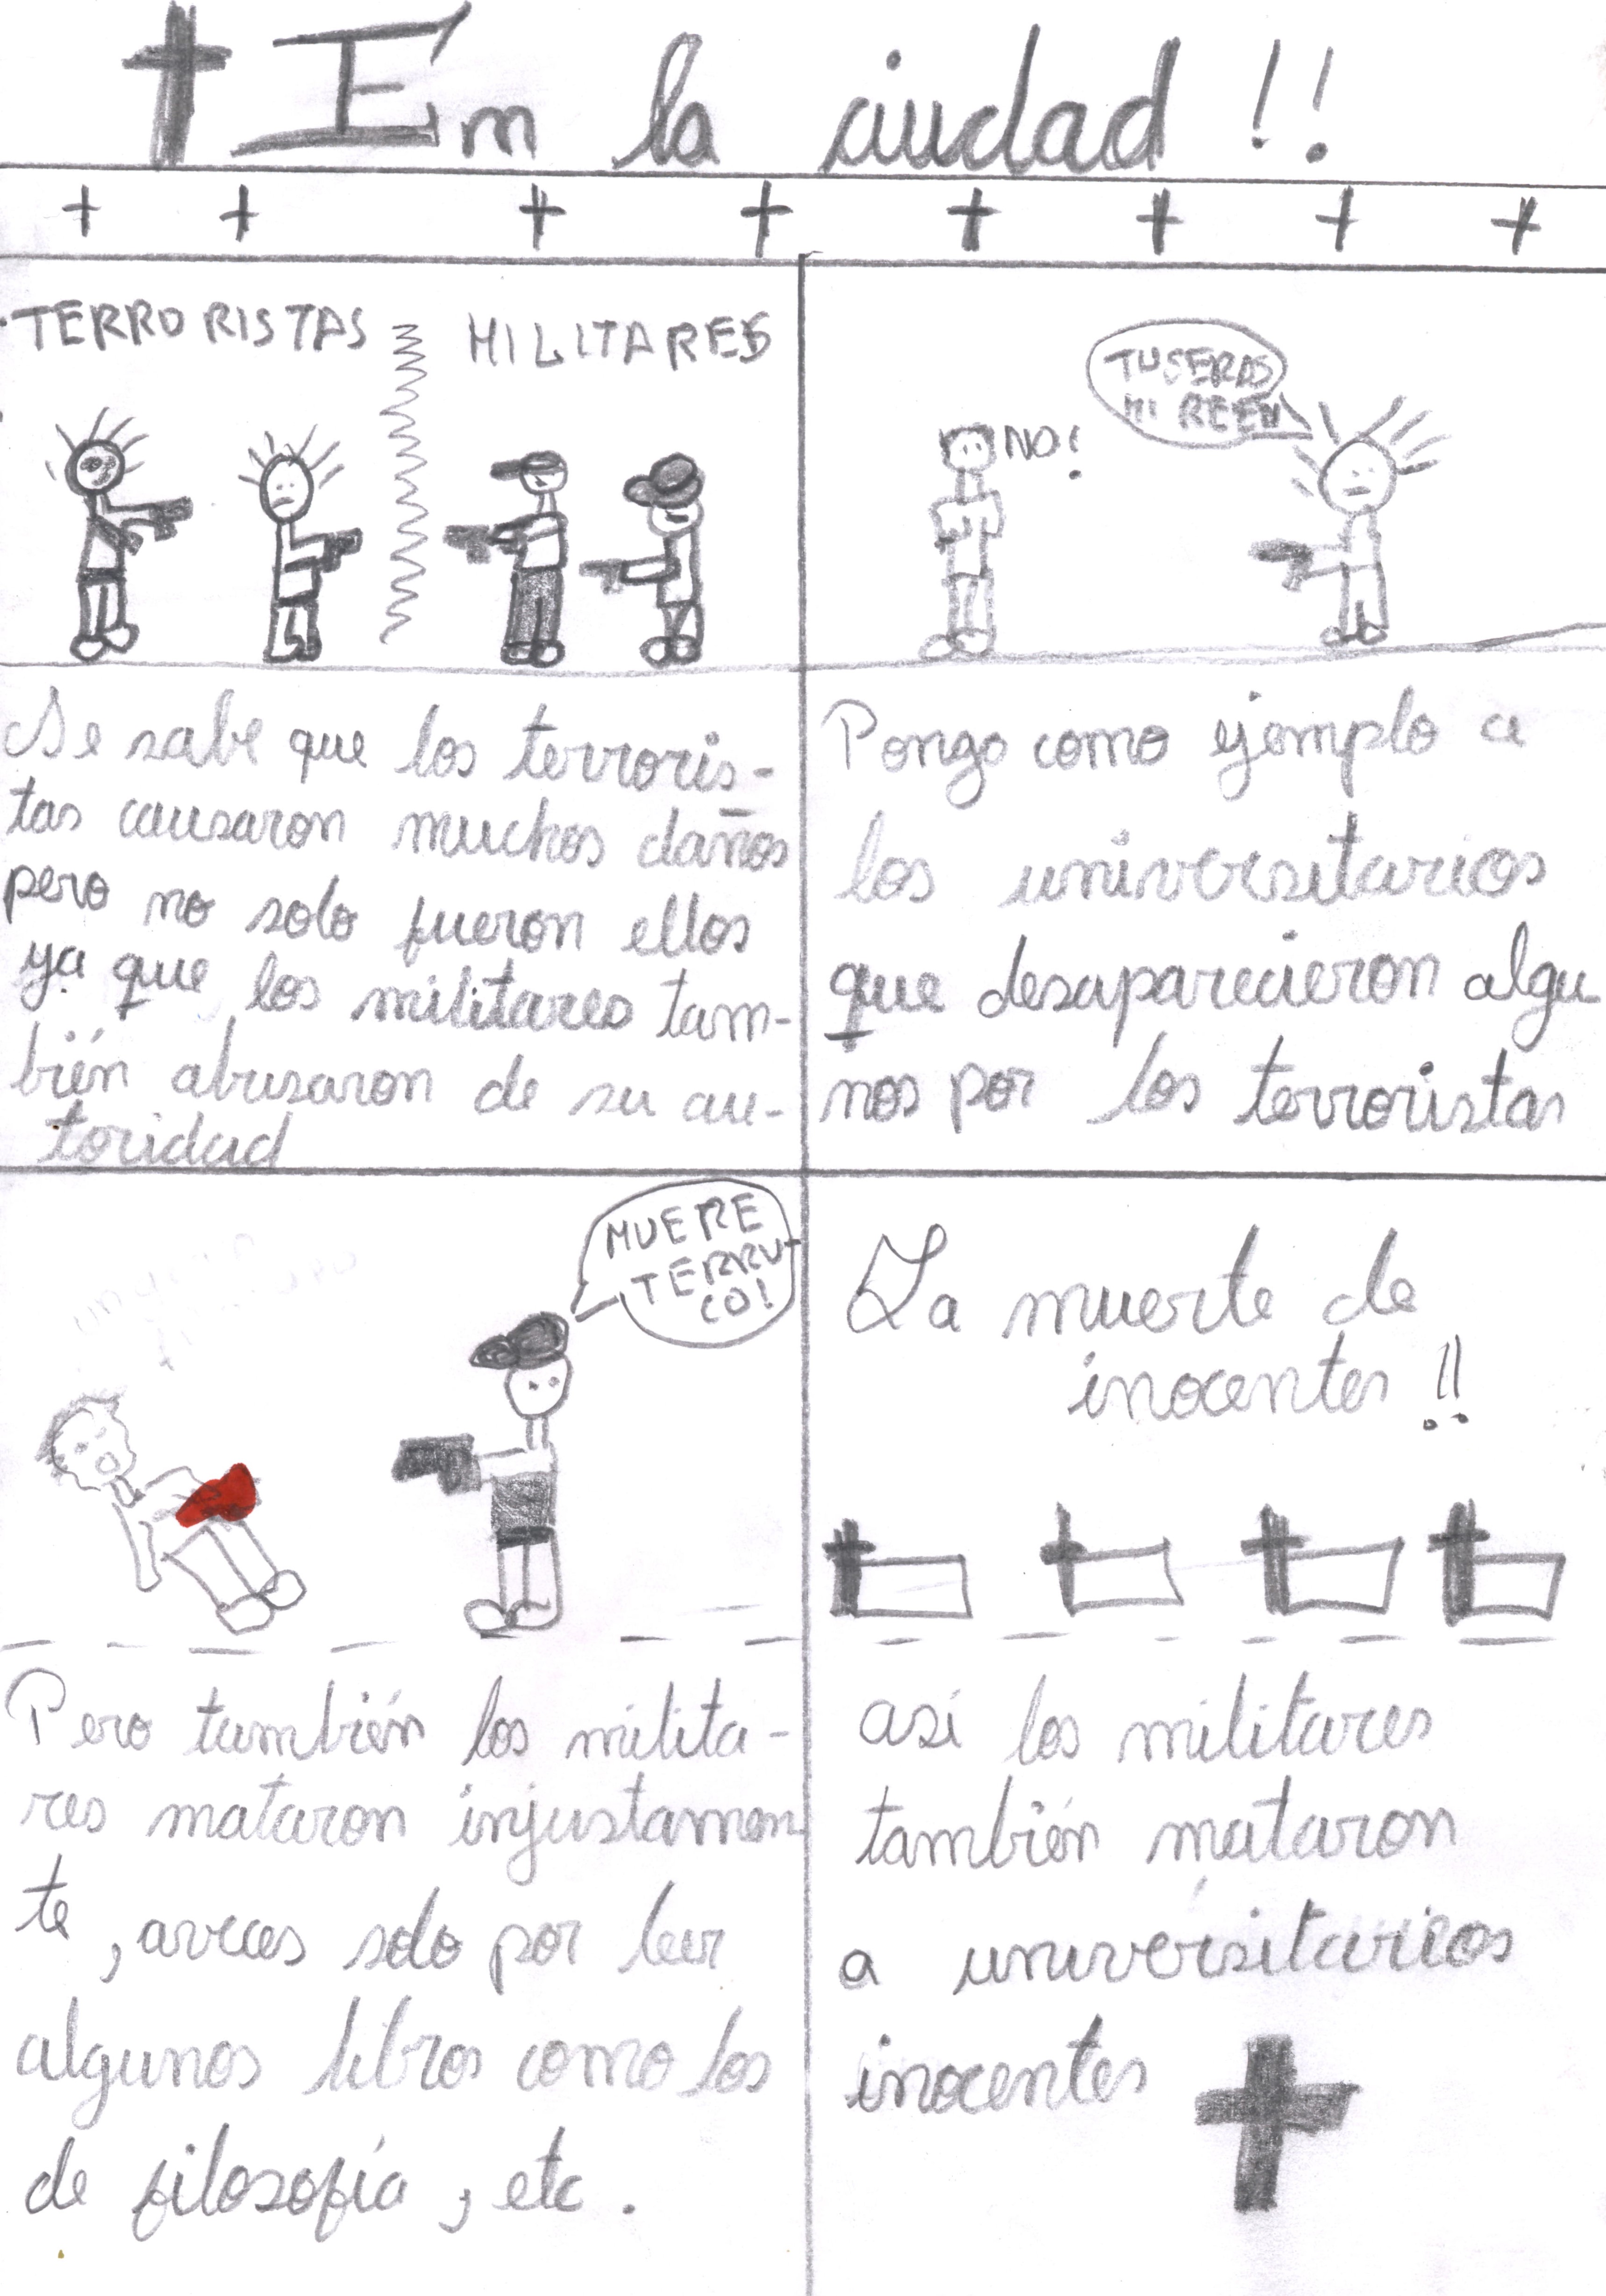 En la ciudad !!
TERRORISTAS
MILITARES
Se sabe que los terroris-
tas causaron muchos daños
pero no solo fueron ellos
ya que los militares tam-
bién abusaron de su au-
toridad
NO!
TU SERAS
MI REEN
Pongo como ejemplo a
los universitarios
que desaparecieron algu
nos por los terroristas
MUERE
TERRU-
CO!
Pero también los milita-
res mataron injustamen
te, aveces solo por leer
algunos libros como los
de filosofía, etc.
La muerte de
inocentes !!
así los militares
también mataron
a universitarios
inocentes